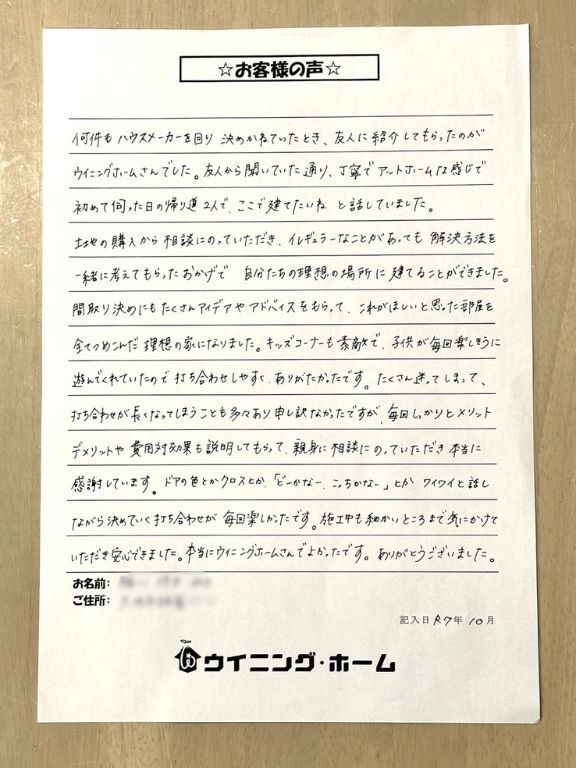 ☆お客様の声☆
何件も ハウスメーカーを回り 決めかねていたとき、友人に紹介してもらったのが
ウイニングホームさんでした。友人から聞いていた通り、丁寧で アットホームな感じで
初めて伺った日の帰り道 2人で、ここで建てたいね と話していました。
土地の購入から 相談にのっていただき、イレギュラーなことがあっても 解決方法を
一緒に考えてもらったおかげで 自分たちの理想の場所に 建てることができました。
間取り決めにもたくさんアイデアや アドバイスをもらって、これがほしいと思った部屋を
全てつめこんだ 理想の家になりました。キッズコーナーも素敵で、子供が毎回楽しそうに
遊んでくれていたので 打ち合わせしやすく、ありがたかったです。たくさん迷ってしまって、
打ち合わせが長くなってしまうことも多々あり申し訳なかったですが、毎回しっかりとメリット
デメリットや 費用対効果も説明してもらって、親身に相談にのっていただき 本当に
感謝しています。ドアの色とかクロスとか、「どーかなー、こっちかなー」とか ワイワイと話し
ながら決めていく打ち合わせが 毎回楽しかったです。施工中も細かいところまで気にかけて
いただき安心できました。本当にウイニングホームさんでよかったです。ありがとうございました。
お名前:
ご住所:
記入日 R7年 10月
ウイニング・ホーム